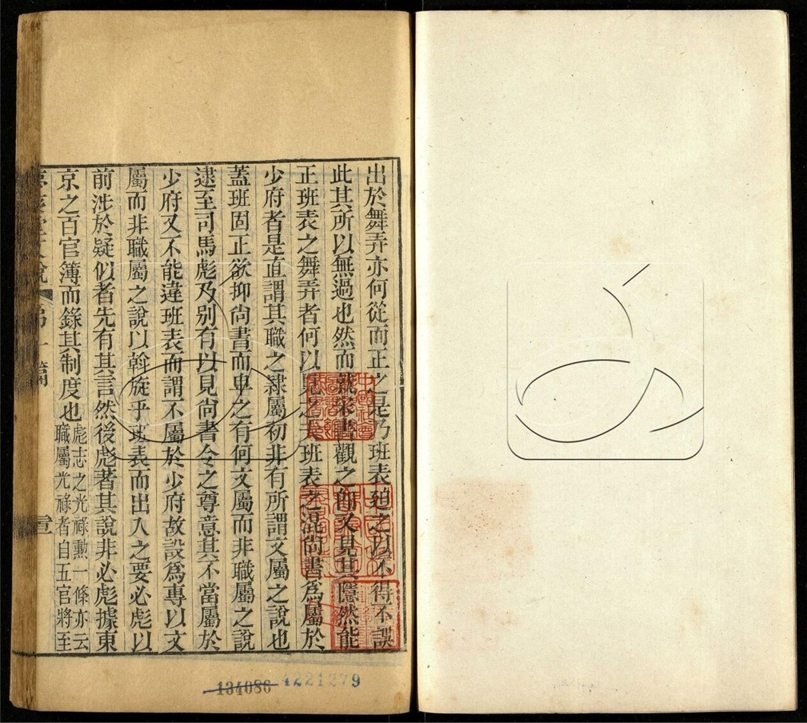 出於舞弄亦何從而正之是乃班表廹之以不得不誤
此其所以無過也然而就宋書觀之卽又見其隱然能
正班表之舞弄者何以見之夫班表之混尚書爲屬於
少府者是直謂其職之隸屬初非有所謂文屬之說也
蓋班固正欲抑尚書而卑之有何文屬而非職屬之說
逮至司馬彪乃别有以見尚書令之尊意其不當屬於
少府又不能違班表而謂不屬於少府故設爲專以文
屬而非職屬之說以斡旋乎班表而出入之要必彪以
前涉於疑似者先有其言然後彪著其說非必彪據東
京之百官簿而錄其制度也彪志之光祿勳一條亦云
職屬光祿者自五官將至
第一篇
134086 4221279